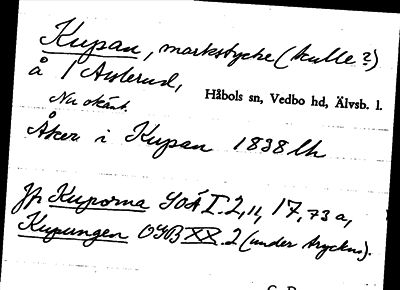 Kupan, markstycke (kulle?)
å 1 Austerud,
Nu okänt. Håbols sn, Vedbo hd, Älvsb. l.
Åker i Kupan 1838 lh
Jfr Kuporna SOÄ I.2,11, 17,73 a,
Kupungen OGB XX.2 (under tryckn.).